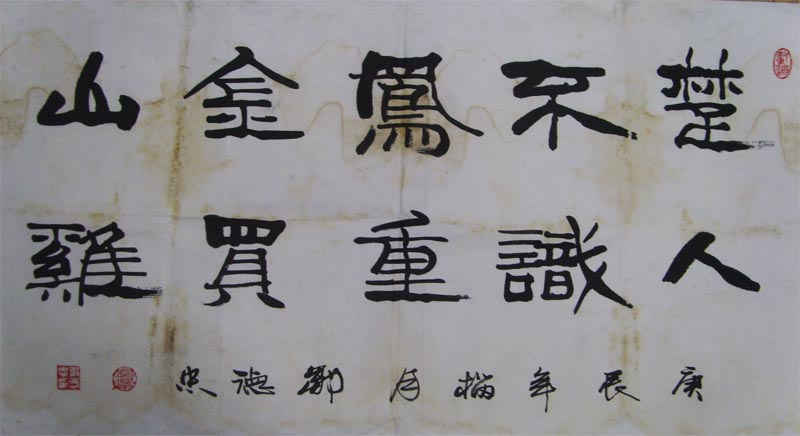 楚人
不識
鳳重
金買
山雞
庚辰年榴月德忠